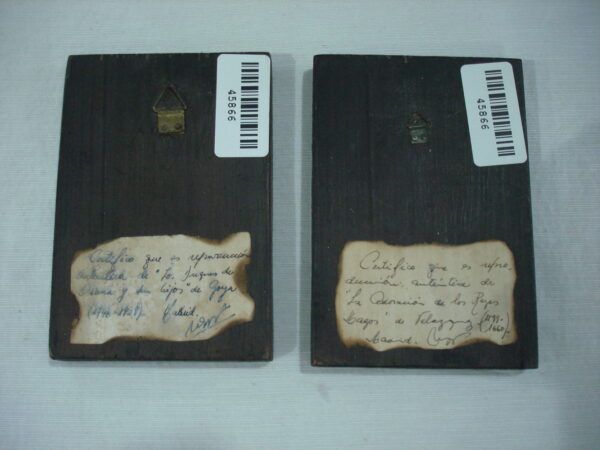 45866
Certifico que es reproducción
auténtica de "Los Duques de
Osuna y sus hijos" de Goya
(1746-1828). Madrid
45866
Certifico que es repro-
ducción auténtica de
"La Adoración de los Reyes
Magos" de Velazquez (1599-
1660).
Madrid.